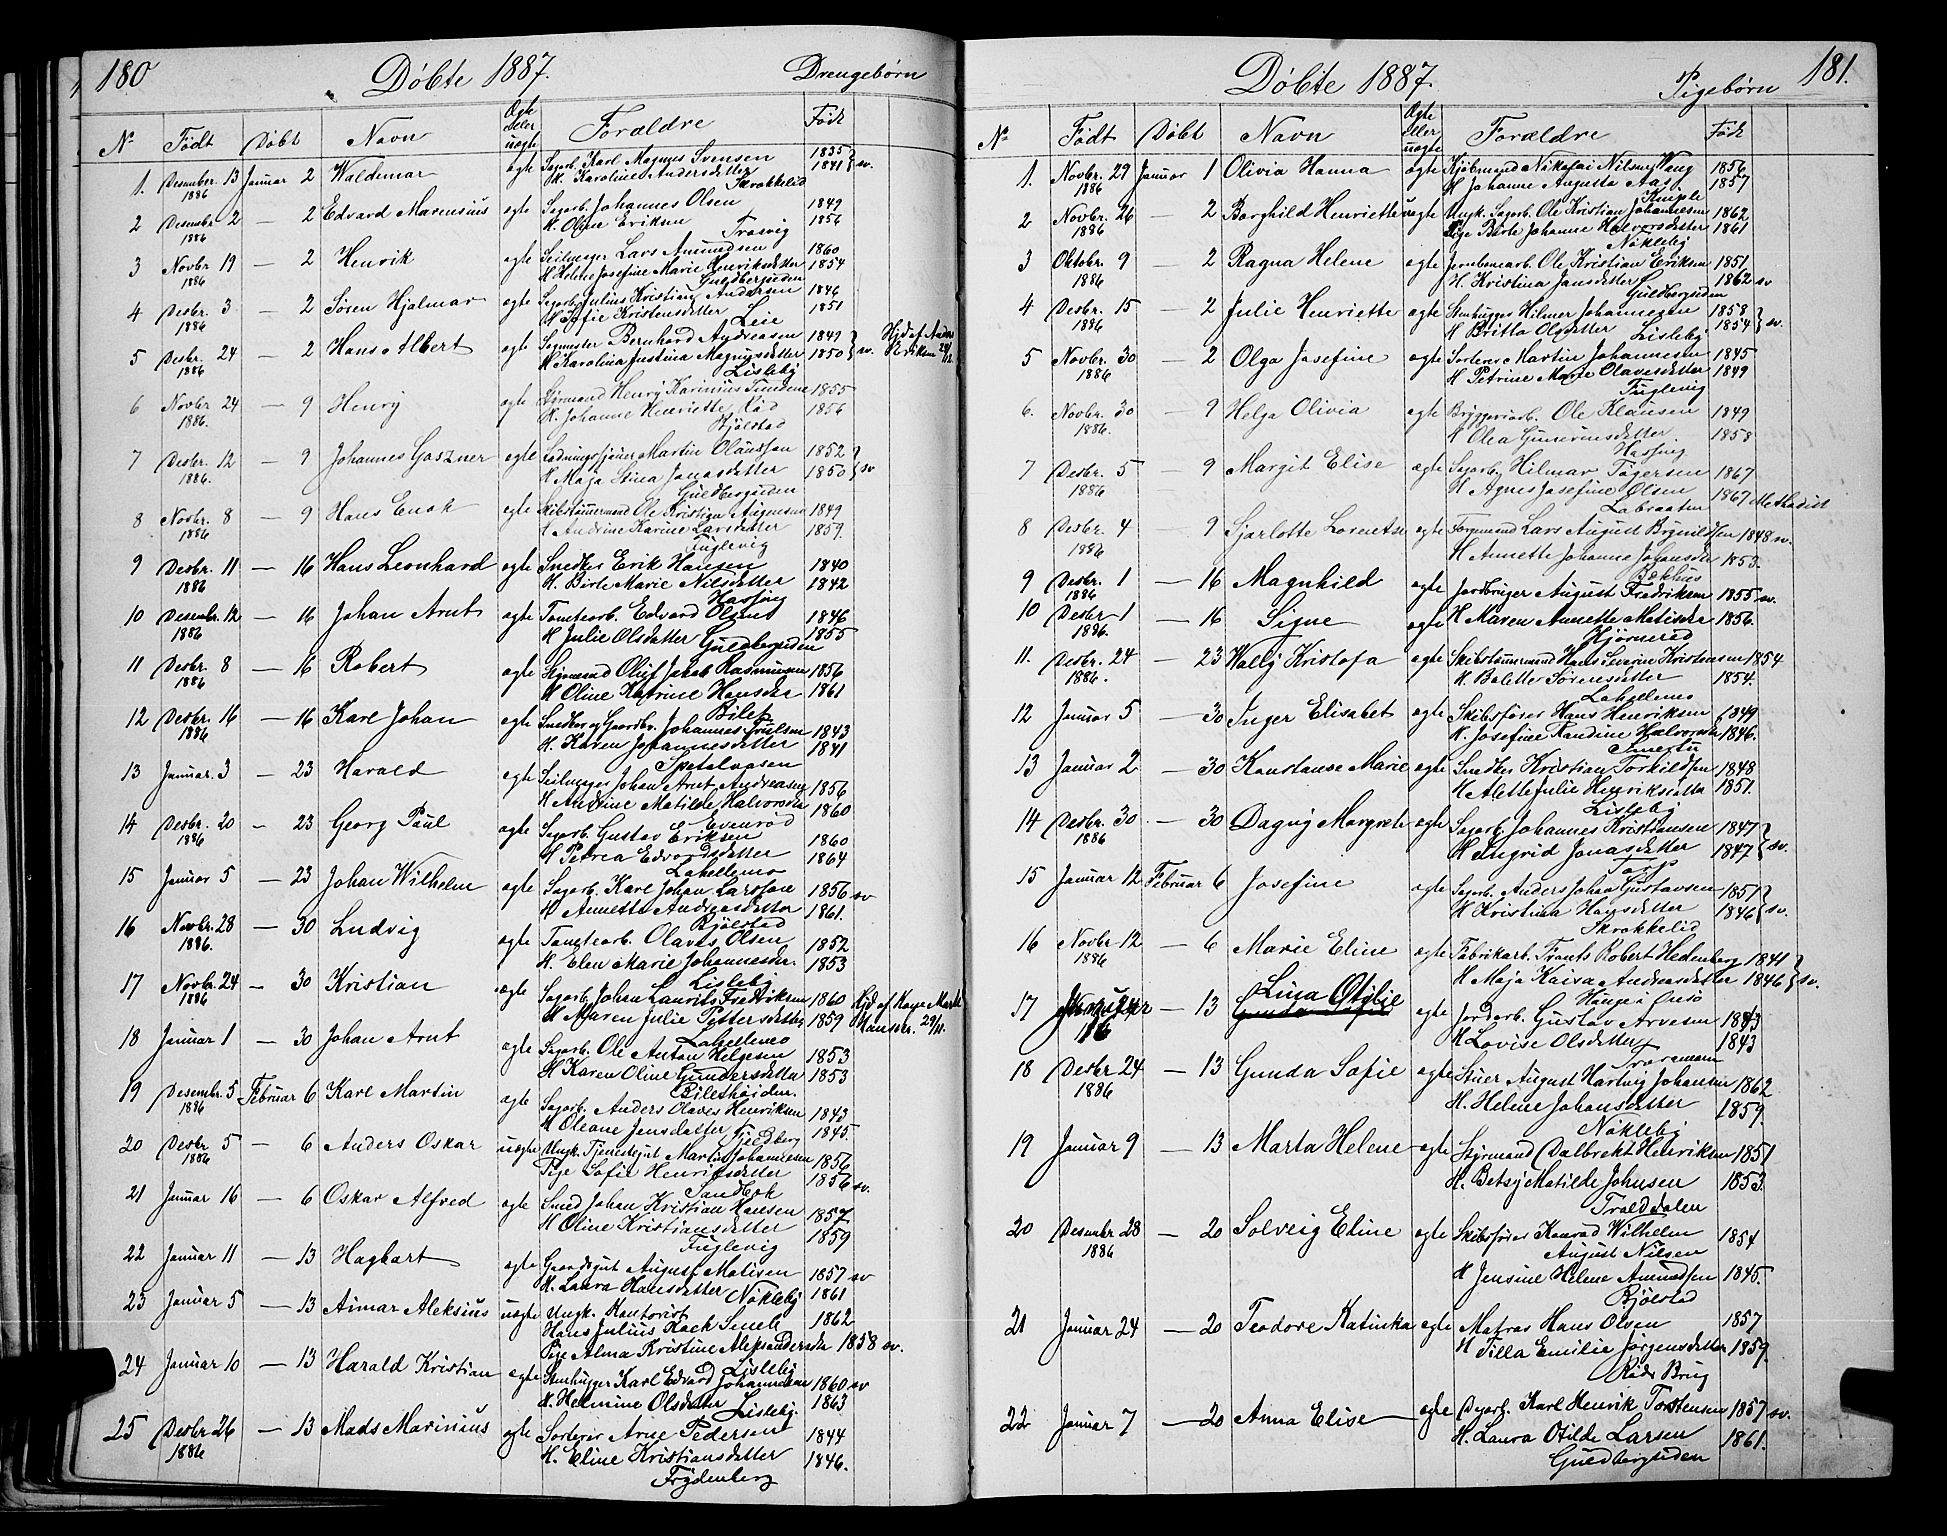 180 Döbte 1887. Drengebørn
No Födt Döbt Navn Ægte eller uægte Forældre Född
1. Desember 13 1886 Januar 2 Waldemar ægte Sagarb. Karl Magnus Svensen 1835
H. Karoline Andersdetter 1841 sv.
Skrokkelid
2 Desember 2 1886 — 2 Edvard Marensius ægte Sagarb. Johannes Olsen 1849
H. Oline Eriksen 1856
Trosvig
3 Novbr. 19 1886 — 2 Henrik ægte Seilmager Lars Amundsen 1860
H. Helene Josefine Marie Henriksdetter 1854
Guldbergsiden
4 Desbr. 3 1886 — 2 Sören Hjalmar ægte Sagarb. Julius Kristian Andersen 1846
H. Sofie Kristensdetter 1851
Leie
5 Desbr. 24 1886 — 2 Hans Albert ægte Sagmester Bernhard Andreasen 1849
H. Karolina Justina Magnusdetter 1850 sv. Hjd af Anders Eriksen 24/12
Lisleby
6 Novbr 24 1886. — 9 Henry ægte Styrmand Henry Karinius 1855
H. Johanne Henriette Röd 1856
Bjölstad
7 Desbr. 12 1886. — 9 Johannes Goszner ægte Martin Olaussen 1852
H. Maja Stina Jonasdetter 1850 sv
Guldbergsiden
8 Novbr. 8 1886 — 9 Hans Enok ægte Skibstømmermand Ole Kristian Augensen 1849
H. Andrine Karine Larsdetter 1859.
Fuglevig
9 Desbr. 11 1886 — 16 Hans Leonhard ægte Snedker Erik Hansen 1840
H. Birte Marie Nilsdetter 1842
Hassing
10 Desembr. 12 1886 — 16 Johan Arnt ægte Tomtearb. Edvard Olsen 1846
H. Julie Olsdetter 1855
Guldbergsiden
11 Desbr. 8 1886 — 16 Robert ægte Styrmand Oluf Jakob Rasmussen 1856
H. Oline Katrine Hansdtr 1861
Bilet
12 Desbr. 16 1886 — 16 Karl Johan ægte Snedker og Gaardbr. Johannes Juelsen 1843
H. Karen Johannesdetter 1841
Spetalvasen
13 Januar. 3 — 23 Harald ægte Seilmager Johan Arnt Andreasen 1856
H. Andrine Matilde Halvorsdtr 1860
Evenröd
14 Desbr. 20 1886 — 23 Georg Paul ægte Sagarb. Gustav Eriksen 1860
H. Petrea Edvardsdetter 1864
Lahellemo
15 Januar 5 — 23 Johan Wilhelm ægte Sagarb. Karl Johan Larsson 1856 sv
H. Annette Andreasdetter 1861.
Bjölstad
16 Novbr. 28 1886. — 30 Ludvig ægte Tomtearb. Olaves Olsen 1852
H. Elen Marie Johannesdtr. 1853
Lisleby
17 Novbr. 24 1886 — 30 Kristian ægte Sagarb. Johan Laurits Fredriksen 1860 Hjd af Karen Marthe
H. Maren Julie Pettersdetter 1859 Hansdtr. 29/11.
Lahellemo
18 Januar 1 — 30 Johan Arnt ægte Sagarb. Ole Anton Helgesen 1853
H. Karen Oline Gundersdetter 1853
Bilethöiden.
19 Desembr. 5 1886 Februar 6 Karl Martin ægte Sagarb. Anders Olaves Henriksen 1843
H. Oleane Jensdatter 1845.
Fjeldberg
20 Desbr 5 1886 — 6 Anders Oskar uægte Ungk. Tjenestegut Martin Johannesen 1856
Pige Sofie Henriksdetter 1856 sv.
Sandbæk
21 Januar 16 — 6 Oskar Alfred ægte Smed Johan Kristian Hansen 1857
H. Oline Kristiansdetter 1859
Fuglevig
22 Januar 11 — 13 Hagbart ægte Gaardsgut August Matisen 1857 sv
H. Laura Hansdetter Nökleby 1861
23 Januar 5 — 13 Aimar Aleksius uægte Ungk. Kontorist
Hans Julius Koch Smell 1862
Pige Alma Kristine Aleksandersdtr 1858 sv.
Lisleby
24 Januar 10 — 13 Harald Kristian ægte Stenhugger Karl Edvard Johannesen 1860 sv
H. Helmine Olsdetter 1863
Lisleby.
25 Desbr 26 1886 — 13 Mads Marinius ægte Sorterer Arne Pedersen 1844
H. Eline Kristiansdetter 1846.
Frydenberg
Döbte 1887. Pigebørn 181.
No Födt Döbt Navn Ægte eller uægte Forældre Född
1. Novbr. 29 1886 Januar 1 Olivia Hanna ægte Kjöbmand Nikolai Nilsen Weng 1856
H. Johanne Augusta Aas 1857
Simple
2 Novbr. 26 1886 — 2 Borghild Henriette uægte Ungk. Sagarb. Ole Kristian Johannesen 1862
Pige Birte Johanne Halvorsdetter 1861
Nökleby
3 Oktobr. 9 1886 — 2 Ragna Helene ægte Jernbanearb. Ole Kristian Eriksen 1851
H. Kristina Jansdetter 1862 sv
Guldbergsiden
4 Desbr. 15 1886 — 2 Julie Henriette ægte Stenhugger Hilmer Johannesen 1858
H. Britta Olsdetter 1854 sv.
Lisleby
5 Novbr. 30 1886 — 2 Olga Josefine ægte Sorterer Martin Johannesen 1845
H. Petrine Marie Olavesdetter 1849
Fuglevig
6. Novbr. 30 1886. — 9 Helga Olivia ægte Bryggeriarb. Ole Klausen 1849
H. Olea Gunerusdetter 1858
Hassing
7 Desbr. 5 1886 — 9 Margit Elise ægte Sagarb. Hilmar Tøgersen 1867
H. Agnes Josefine Olsen 1867 Methodist
Labraaten
8 Desbr. 4 1886 — 9 Sjarlotte Lorentse ægte Formand Lars August Brynildsen 1848 sv.
H. Annette Johanne Johansdtr 1853.
Bækhus
9 Desbr. 1 1886 — 16 Magnhild ægte Jordbruger August Fredriksen 1855 sv.
10 Desbr 1 1886. — 16 Signe ægte H. Maren Annette Matisdtr 1856.
Hjörneröd
11. Desbr. 24 1886. — 23 Wally Kristofa ægte Skibstømmermand Hans Severin Kristensen 1854
H. Bolette Sørensdetter 1854.
Lahellemo
12 Januar 5 — 30 Inger Elisabet ægte Skibsfører Hans Henriksen 1849
H. Josefine Randine Halvorsdtr 1846.
Smertu
13 Januar 2 — 30 Konstanse Marie ægte Snedker Kristian Torkildsen 1848
H. Alette Julie Henriksdetter 1851.
Lisleby
14 Desbr. 30 1886 — 30 Dagny Margrete ægte Sagarb. Johannes Kristiansen 1847
H. Ingrid Jonasdetter 1847 sv.
Torp
15 Januar 12 Februar 6 Josefine ægte Sagarb. Anders Johan Gustavsen 1851
H. Kristina Hansdetter 1846 sv.
Skrokkelid
16 Novbr 12 1886 — 6 Marie Eline ægte Fabrikarb. Frants Robert Hedenberg 1841
H. Maja Kaisa Andreasdetter 1846 sv.
17 — 13 Lina Otilie ægte Jordarb. Gustav Arvesen 1843
Gunda Sofie H. Lovise Olsdetter 1843
Traramoen
18 Desbr 24 1886 — 13 Gunda Sofie ægte Stuer August Hartvig Johansen 1862
H. Helene Johansdetter 1859.
Nökleby
19 Januar 9 — 13 Marta Helene ægte Styrmand Dalbrekt Henriksen 1851
H. Betsy Matilde Johnsen 1853.
Trolddalen
20 Desembr 28 1886 — 20 Solveig Eline ægte Skibsfører Konrad Wilhelm 1854
August Nilsen
H. Jensine Helene Amundsen 1845.
Bjölstad
21 Januar 24 — 20 Teodore Katinka ægte Matros Hans Olsen 1857
H. Tilla Emilie Jørgensdetter 1859.
Röds Brug
22 Januar 7 — 20 Anna Elise ægte Dagarb. Karl Henrik Torstensen 1857 sv.
H. Laura Otilde Larsen 1861.
Guldbergsiden